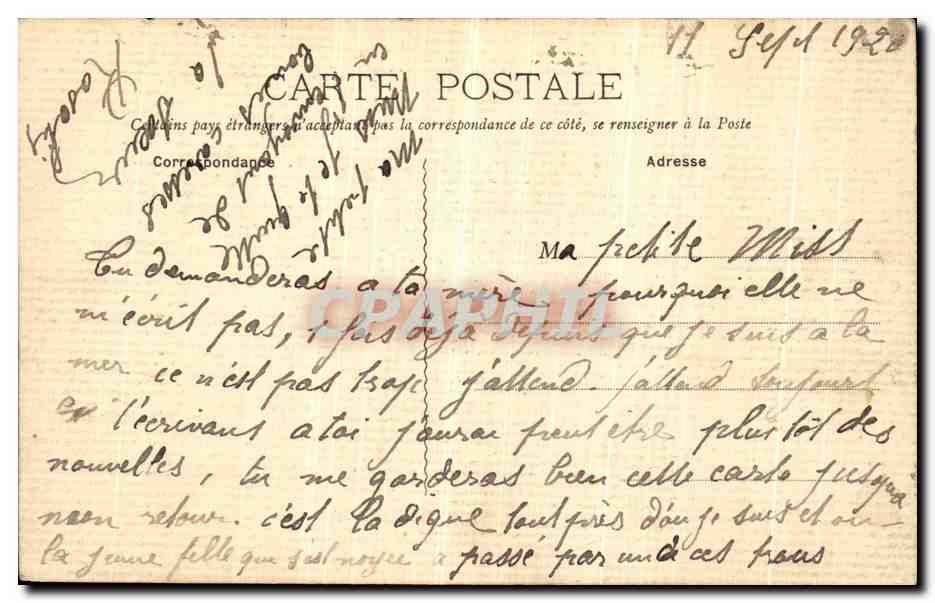 11 Sept 1920
CARTE POSTALE
Certains pays étrangers n'acceptant pas la correspondance de ce côté, se renseigner à la Poste
Correspondance
Adresse
Ma petite Miss
Tu demanderas a ta mère pourquoi elle ne
m'écrit pas, 1 fois déjà depuis que je suis a la
mer ce n'est pas trop j'attend. j'attend toujours
en t'écrivant a toi j'aurai peut etre plus tôt des
nouvelles, tu me garderas bien cette carte jusqu'à
mon retour. c'est la digue tout près d'ou je suis et ou
la jeune fille qui s'est noyée a passé par un de ces trous
CPAPHIL
Ma petite
Miss je te quitte
en
caresses